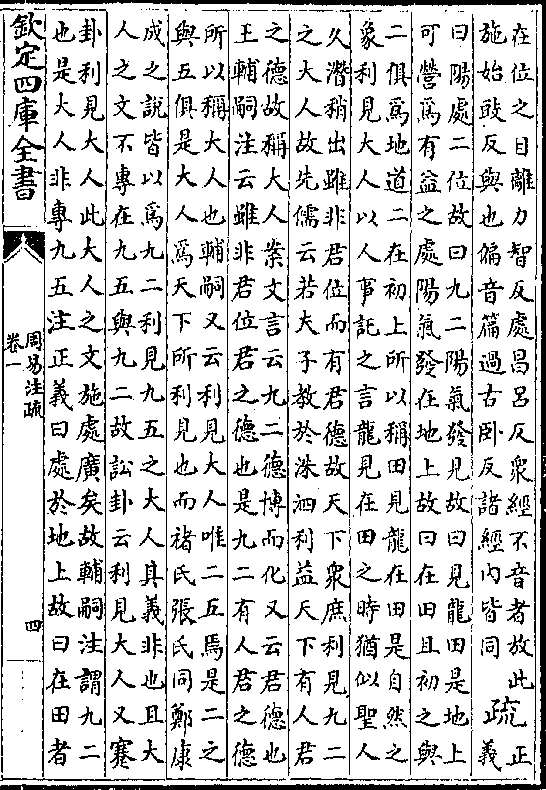 在位之目離力智反處昌呂反眾經不音者故此
施始豉反與也偏音篇過古卧反諸經内皆同
疏
正
義
曰陽處二位故曰九二陽氣發見故曰見龍田是地上
可營爲有益之處陽氣發在地上故曰在田且初之與
二俱爲地道二在初上所以稱田見龍在田是自然之
象利見大人以人事託之言龍見在田之時猶似聖人
久潛稍出雖非君位而有君德故天下衆庶利見九二
之大人故先儒云若夫子教於洙泗利益天下有人君
之德故稱大人案文言云九二德博而化又云君德也
王輔嗣注云雖非君位君之德也是九二有人君之德
所以稱大人也輔嗣又云利見大人唯二五焉是二之
與五俱是大人爲天下所利見也而禇氏張氏同鄭康
成之說皆以爲九二利見九五之大人其義非也且大
人之文不專在九五與九二故訟卦云利見大人又蹇
卦利見大人此大人之文施處廣矣故輔嗣注謂九二
也是大人非專九五注正義曰處於地上故曰在田者
欽定四庫全書
周易注疏
卷一
四